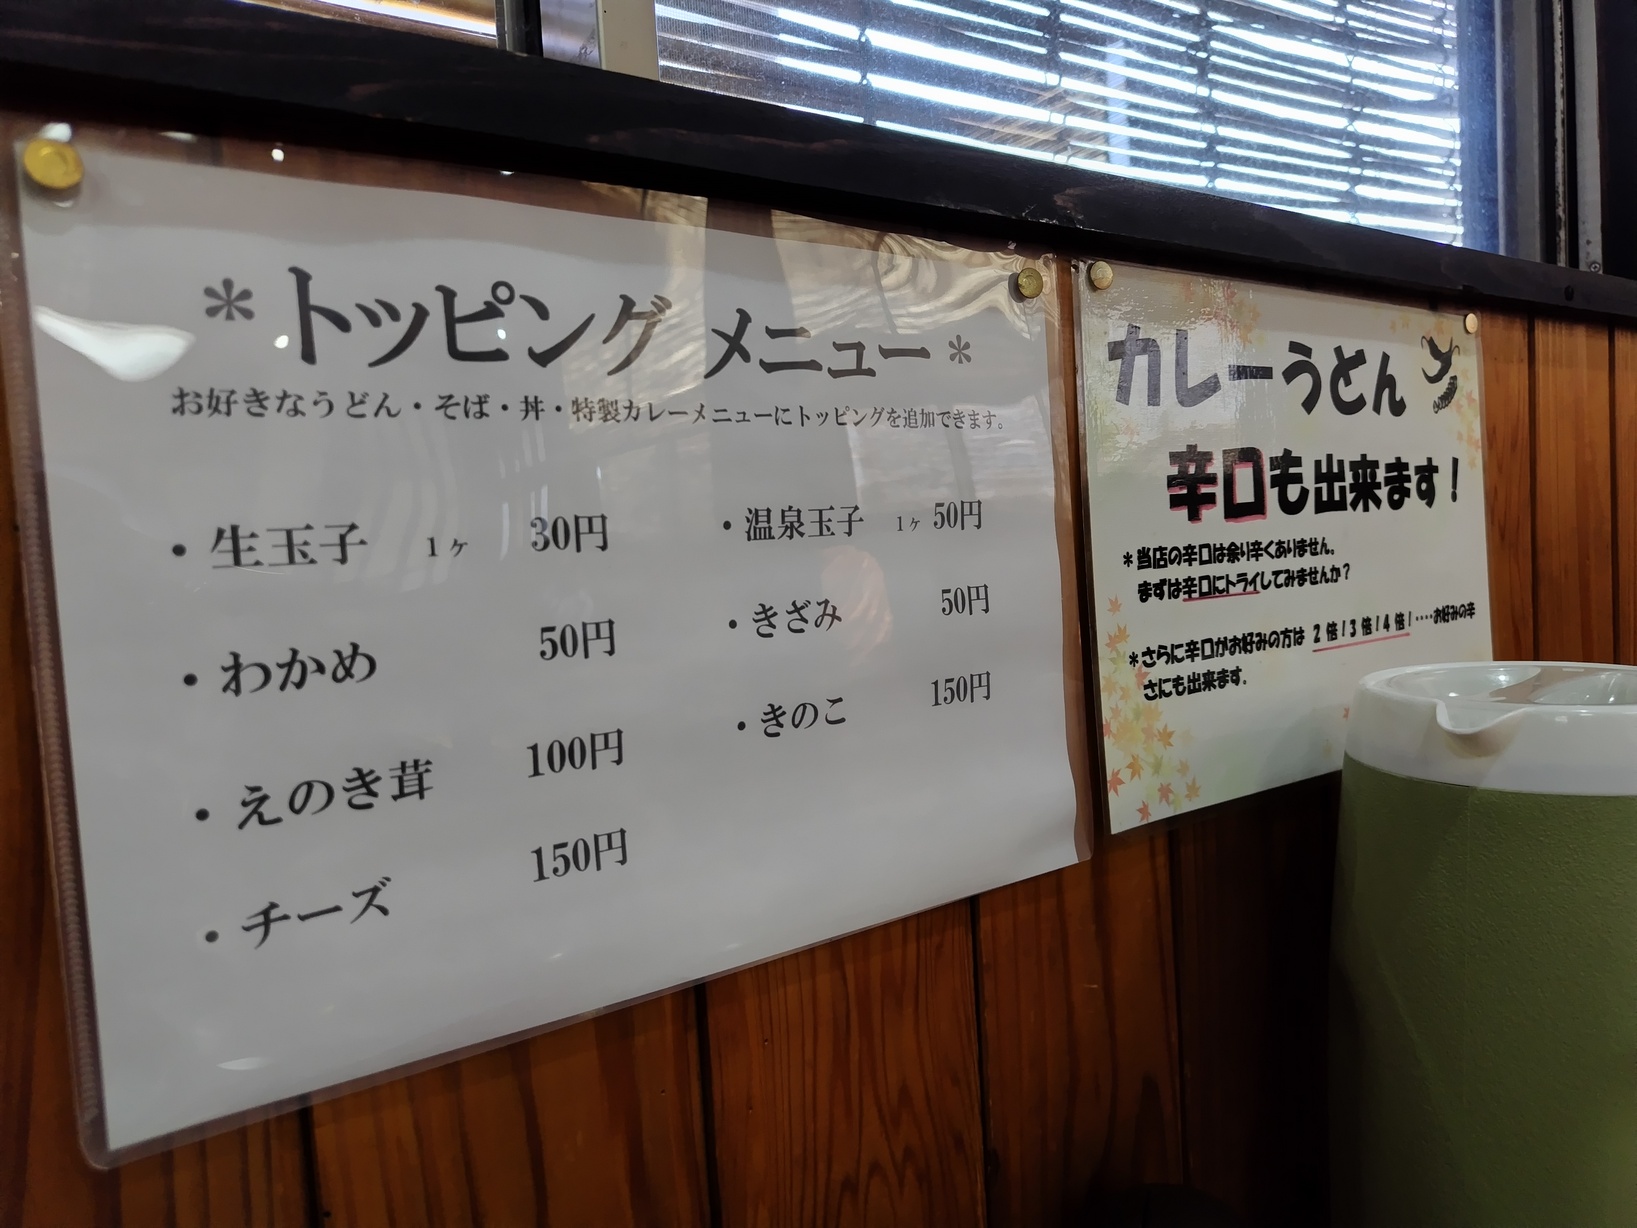 *トッピング メニュー*
お好きなうどん・そば・丼・特製カレーメニューにトッピングを追加できます。
・生玉子 1ヶ 30円
・わかめ 50円
・えのき茸 100円
・チーズ 150円
・温泉玉子 1ヶ 50円
・きざみ 50円
・きのこ 150円
カレーうどん
辛口も出来ます!
*当店の辛口は余り辛くありません。
まずは辛口にトライしてみませんか?
*さらに辛口がお好みの方は 2倍!3倍!4倍!····お好みの辛
さにも出来ます。